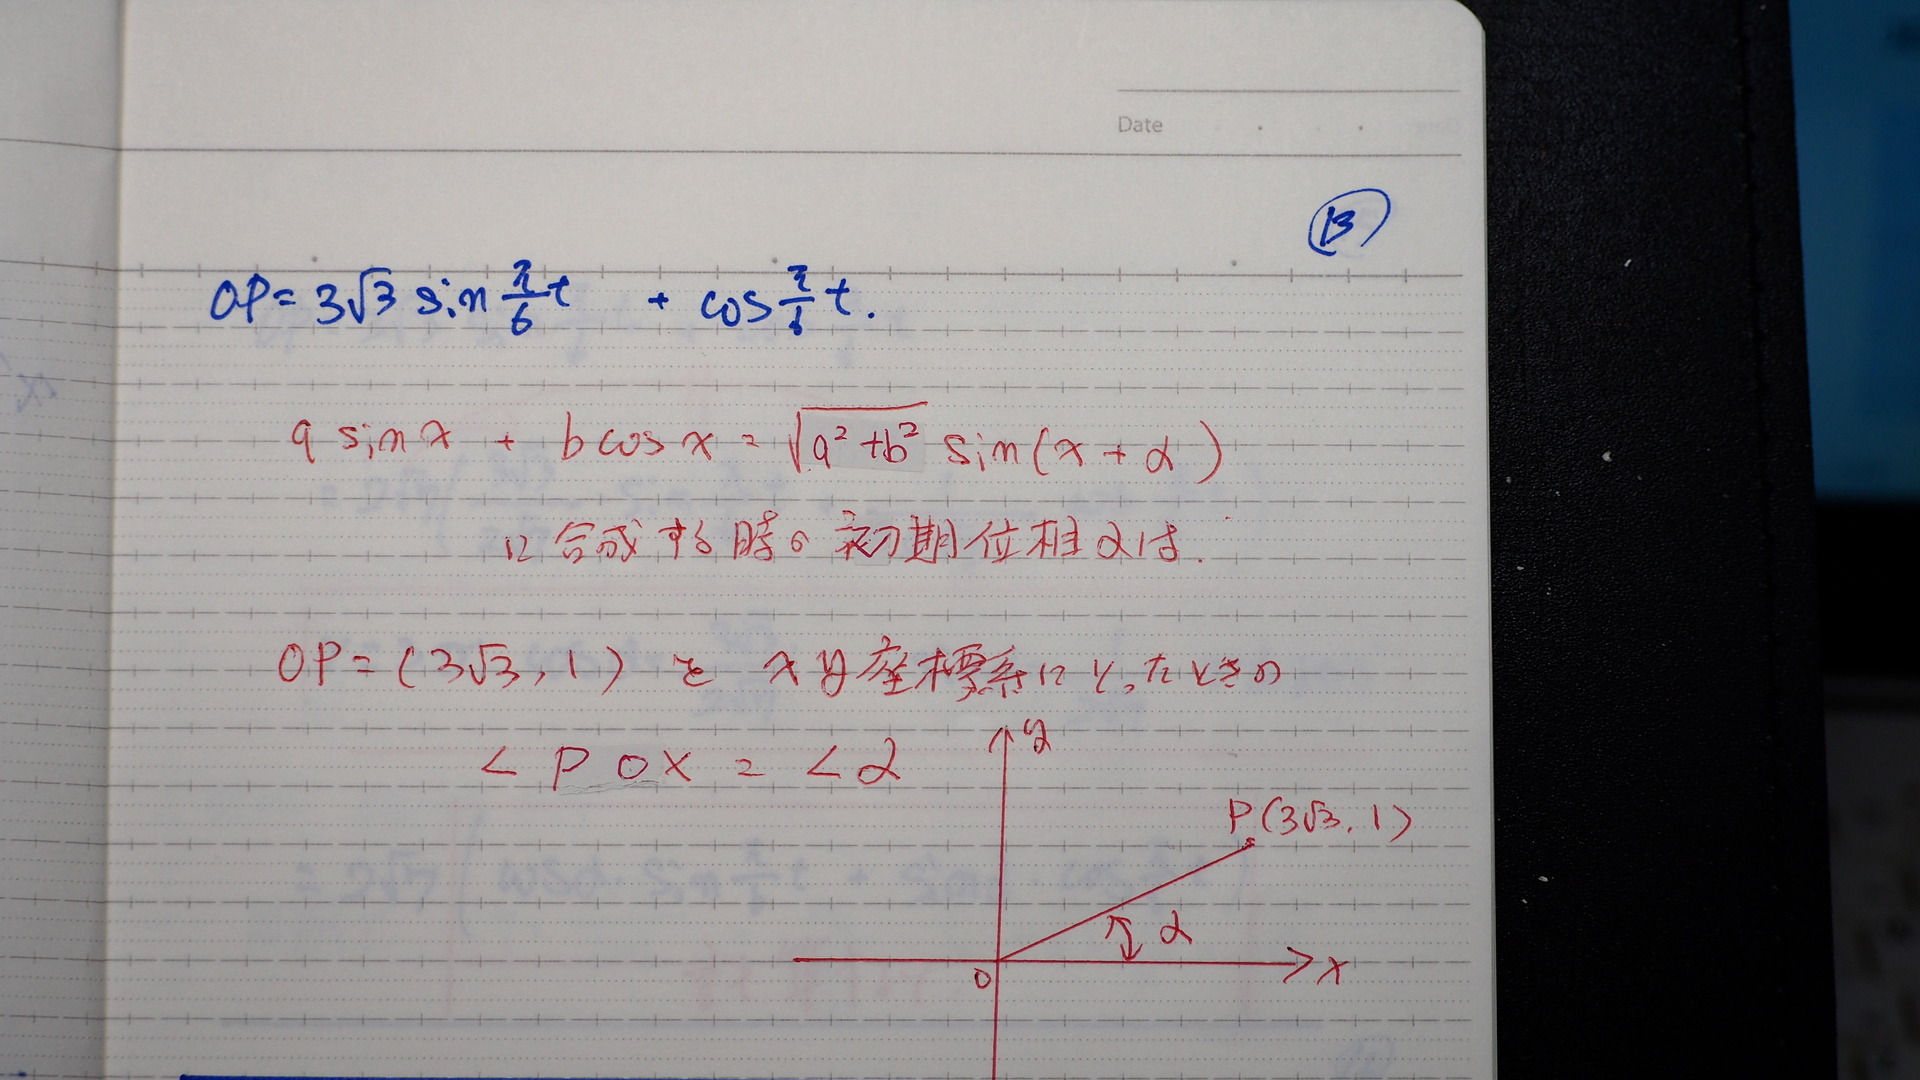 Date
⑬
OP = 3√3 sin π/6 t + cos π/6 t.
a sin x + b cos x = √(a² + b²) sin(x + α)
に合成する時の初期位相αは.
OP = (3√3, 1) を xy座標系にとったときの
∠POX = ∠α
y
P(3√3, 1)
α
O
x